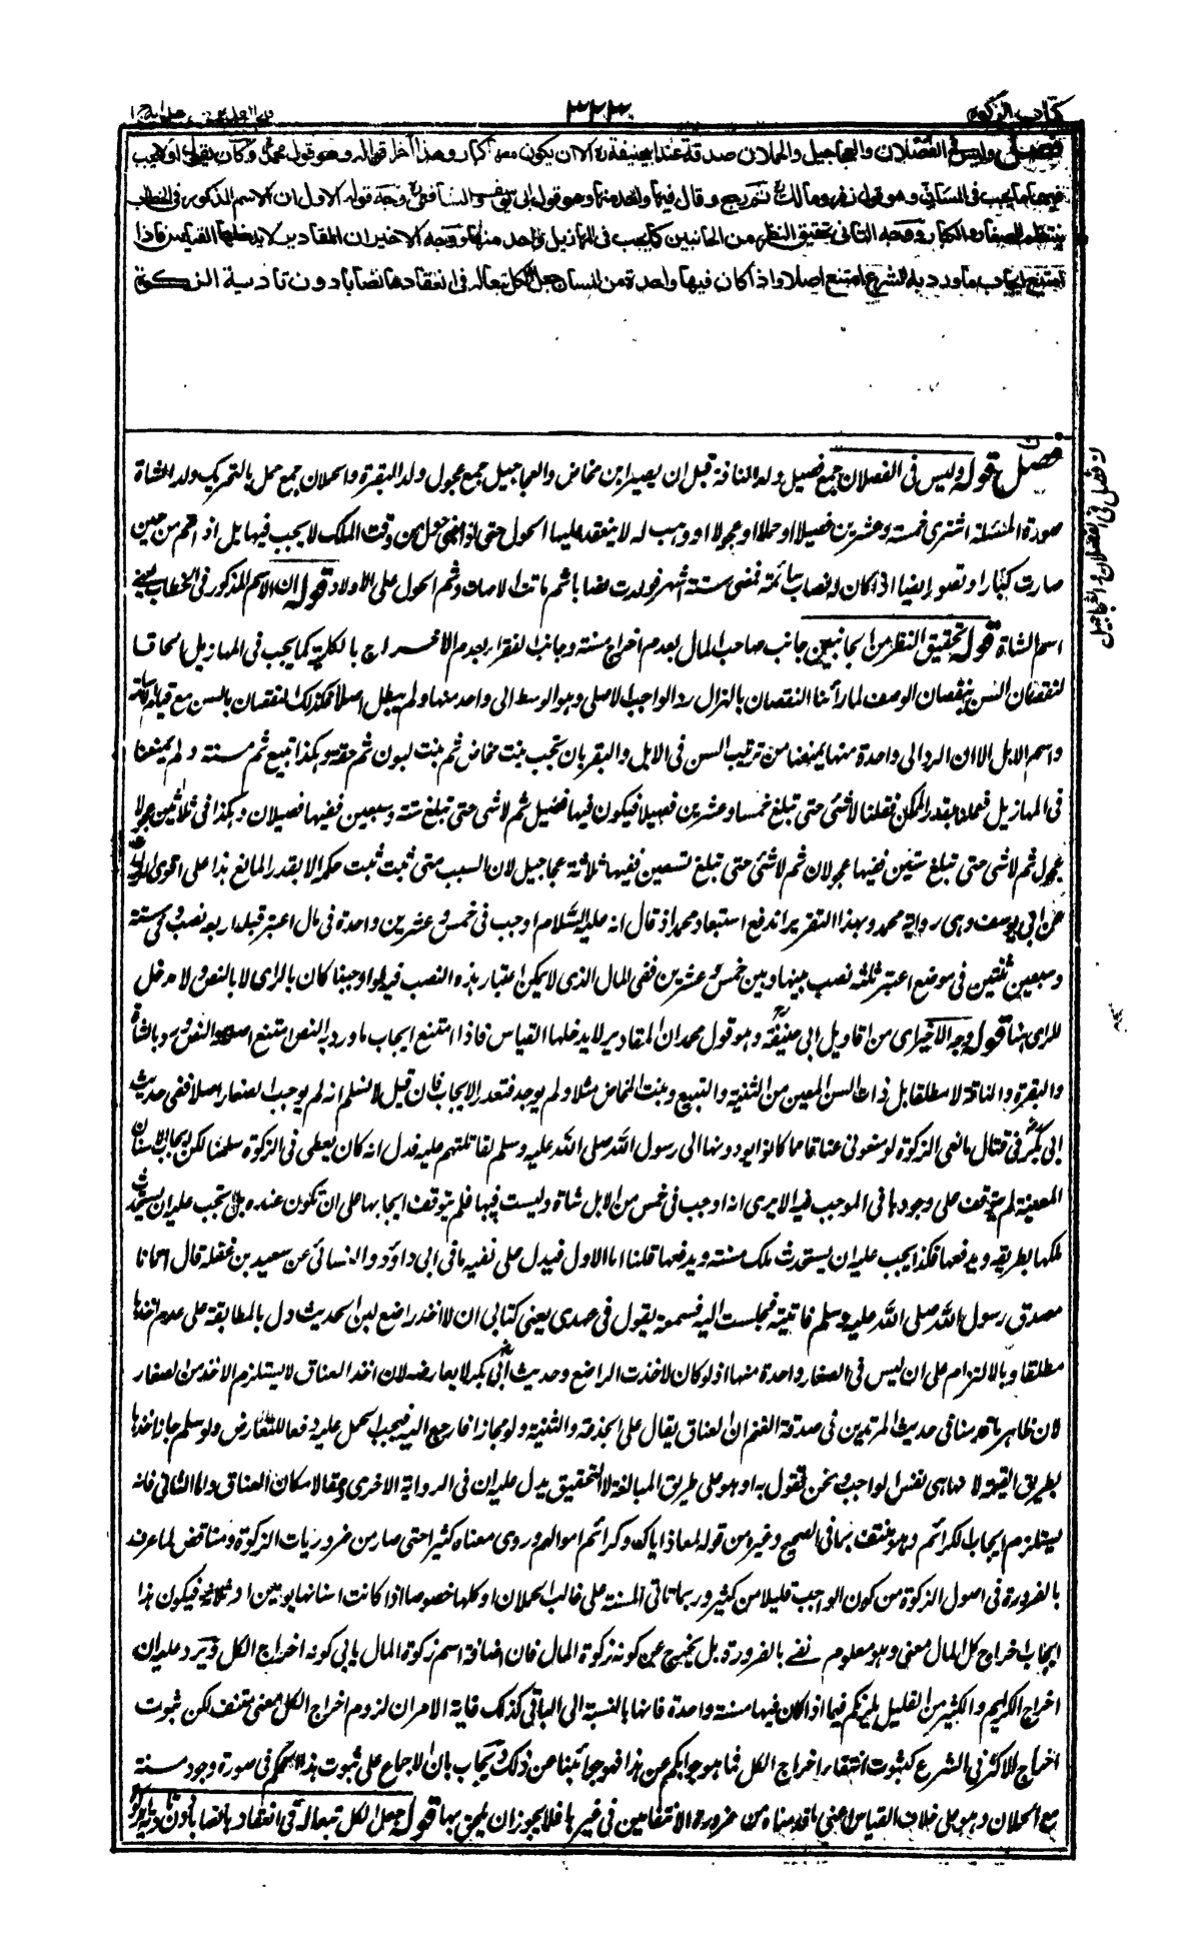 كتاب الزكوة
٣٢٣
فتح القدير مع هدايه ج ١
فصل وليس في الفصلان والعجاجيل والحملان صدقة عند ابي حنيفة الا ان يكون معها كبار وهذا اٰخر اقواله وهو قول محمد وكان يقول اولا يجب
فيها ما يجب في المسان وهو قول زفر ومالك ثم رجع وقال فيها واحدة منها وهو قول ابي يوسف والشافعي وجه قوله الاول ان الاسم المذكور في الخطاب
ينتظم الصغار والكبار ووجه الثاني تحقيق النظر من الجانبين كما يجب في المهازيل واحد منها ووجه الاخير ان المقادير لا يدخلها القياس فاذا
امتنع ايجاب ما ورد به الشرع امتنع اصلا واذا كان فيها واحدة من المسان جعل الكل تبعا له في انعقادها نصابا دون تادية الزكوة
فصل قوله وليس في الفصلان جمع فصيل ولد الناقة قبل ان يصير ابن مخاض والعجاجيل جمع عجول ولد البقرة والحملان جمع حمل بالتحريك ولد الشاة
صورة المسئلة اشترى خمسة وعشرين فصيلا او حملا او عجولا او وهب له لا ينعقد عليها الحول حتى اذا مضى حول من وقت الملك لا يجب فيها بل اذا تم من حين
صارت كبارا وتصور ايضا اذا كان له نصاب سائمة فمضى ستة اشهر فولدت نصابا ثم ماتت الامهات وتم الحول على الاولاد قوله ان الاسم المذكور في الخطاب يعني
اسم الشاة قوله تحقيق النظر من الجانبين جانب صاحب المال بعدم اخراج مسنة وجانب الفقراء بعدم الاخراج بالكلية كما يجب في المهازيل الحاقا
لنقصان السن بنقصان الوصف لما رأينا النقصان بالهزال رد الواجب الاصلي وهو الوسط الى واحد منها ولم يبطل اصلا فكذلك النقصان بالسن مع قيام
واسم الابل الا ان الرد الى واحدة منها يمنعنا من ترتيب السن في الابل والبقر بان تجب بنت مخاض ثم بنت لبون ثم حقة وهكذا تبيع ثم مسنة ولم يمنعنا
في المهازيل فعملنا بقدر الممكن فقلنا لا شئ حتى تبلغ خمسا وعشرين فصيلا فيكون فيها فصيل ثم لا شئ حتى تبلغ ستة وسبعين ففيها فصيلان وهكذا في ثلاثين عجولا
عجول ثم لا شئ حتى تبلغ ستين ففيها عجولان ثم لا شئ حتى تبلغ تسعين ففيها ثلاثة عجاجيل لان السبب متى ثبت ثبت حكمه الا بقدر المانع هذا على اقوى
عن ابي يوسف وهي رواية محمد وبهذا التقرير اندفع استبعاد محمد اذ قال انه عليه السلام اوجب في خمس وعشرين واحدة في مال اعتبر قبله اربعة نصب وفي ستة
وسبعين ثنتين في موضع اعتبر ثلثة نصب بينها وبين خمس وعشرين ففي المال الذي لا يمكن اعتبار هذه النصب فيه لو اوجبنا كان بالراى لا بالنص ولا مدخل
للراى هنا قوله وجه الاخير اى من اقاويل ابي حنيفة وهو قول محمد ان المقادير لا يدخلها القياس فاذا امتنع ايجاب ما ورد به النص امتنع اصلا والنص ورد بالشاة
والبقرة والناقة لا مطلقا بل ذات السن المعين من الثنية والتبيع وبنت المخاض مثلا ولم يوجد فتعذر الايجاب فان قيل لا نسلم انه لم يوجب الصغار اصلا ففي حديث
ابي بكر في قتال مانعي الزكوة لو منعوني عناقا مما كانوا يودونها الى رسول الله صلى الله عليه وسلم لقاتلتهم عليه فدل انه كان يعطى في الزكوة سلمنا لكن ايجاب الاسنان
المعينة لم يتوقف على وجودها في الموجب فيه الا يرى انه اوجب في خمس من الابل شاة وليست فيها فلم يتوقف ايجابها على ان تكون عنده بل تجب عليه ان يستحدث
ملكها بطريقه ويدفعها فكذا يجب عليه ان يستحدث ملك مسنة ويدفعها قلنا اما الاول فيدل على نفيه ما في ابي داؤد والنسائي عن سعيد بن غفلة قال اتانا
مصدق رسول الله صلى الله عليه وسلم فاتيته فجلست اليه فسمعته يقول في عهدي يعني كتابي ان لا آخذ راضع لبن الحديث دل بالمطابقة على عدم اخذها
مطلقا وبالالتزام على ان ليس في الصغار واحدة منها اذ لو كان لاخذت الراضع وحديث ابي بكر لا يعارضه لان اخذ العناق لا يستلزم الاخذ من الصغار
لان ظاهر ما قدمنا في حديث المرتدين في صدقة الغنم ان العناق يقال على الجذعة والثنية ولو مجازا فارجع اليه فيجب الحمل عليه دفعا للتعارض ولو سلم جاز اخذها
بطريق القيمة لا انها هي نفس الواجب ونحن نقول به او هو على طريق المبالغة لا التحقيق يدل عليه ان في الرواية الاخرى عقالا مكان العناق واما الثاني فانه
يستلزم ايجاب الكرائم وهو منتف بما في الصحيح وغيره من قوله لمعاذ اياك وكرائم اموالهم وروى معناه كثيرا حتى صار من ضروريات الزكوة ومناقض لما عرف
بالضرورة في اصول الزكوة من كون الواجب قليلا من كثير وربما تاتي المسنة على غالب الحملان او كلها خصوصا اذا كانت اسنانها يومين او ثلاثة فيكون هذا
ايجاب اخراج كل المال معنى وهو معلوم نفيه بالضرورة بل يخرج عن كونه زكوة المال فان اضافة اسم زكوة المال يابى كونه اخراج الكل ويرد عليه ان
اخراج الكرايم والكثير من القليل يلزمكم فيما اذا كان فيها مسنة واحدة فانها بالنسبة الى الباقي كذلك غاية الامر ان لزوم اخراج الكل معنى منتف لكن ثبوت
اخراج الاكثر في الشرع كثبوت انتفاء اخراج الكل فما هو جوابكم عن هذا فهو جوابنا عن ذلك ويجاب بان الاجماع على ثبوت هذا الحكم في صورة وجود مسنة
مع الحملان وهو على خلاف القياس اعني ما قدمناه من ضرورة الانتفائين في غيرها فلا يجوز ان يلحق بها قوله جعل الكل تبعا له في انعقادها نصابا دون تادية الزكوة
فصل في الفصلان والعجاجيل